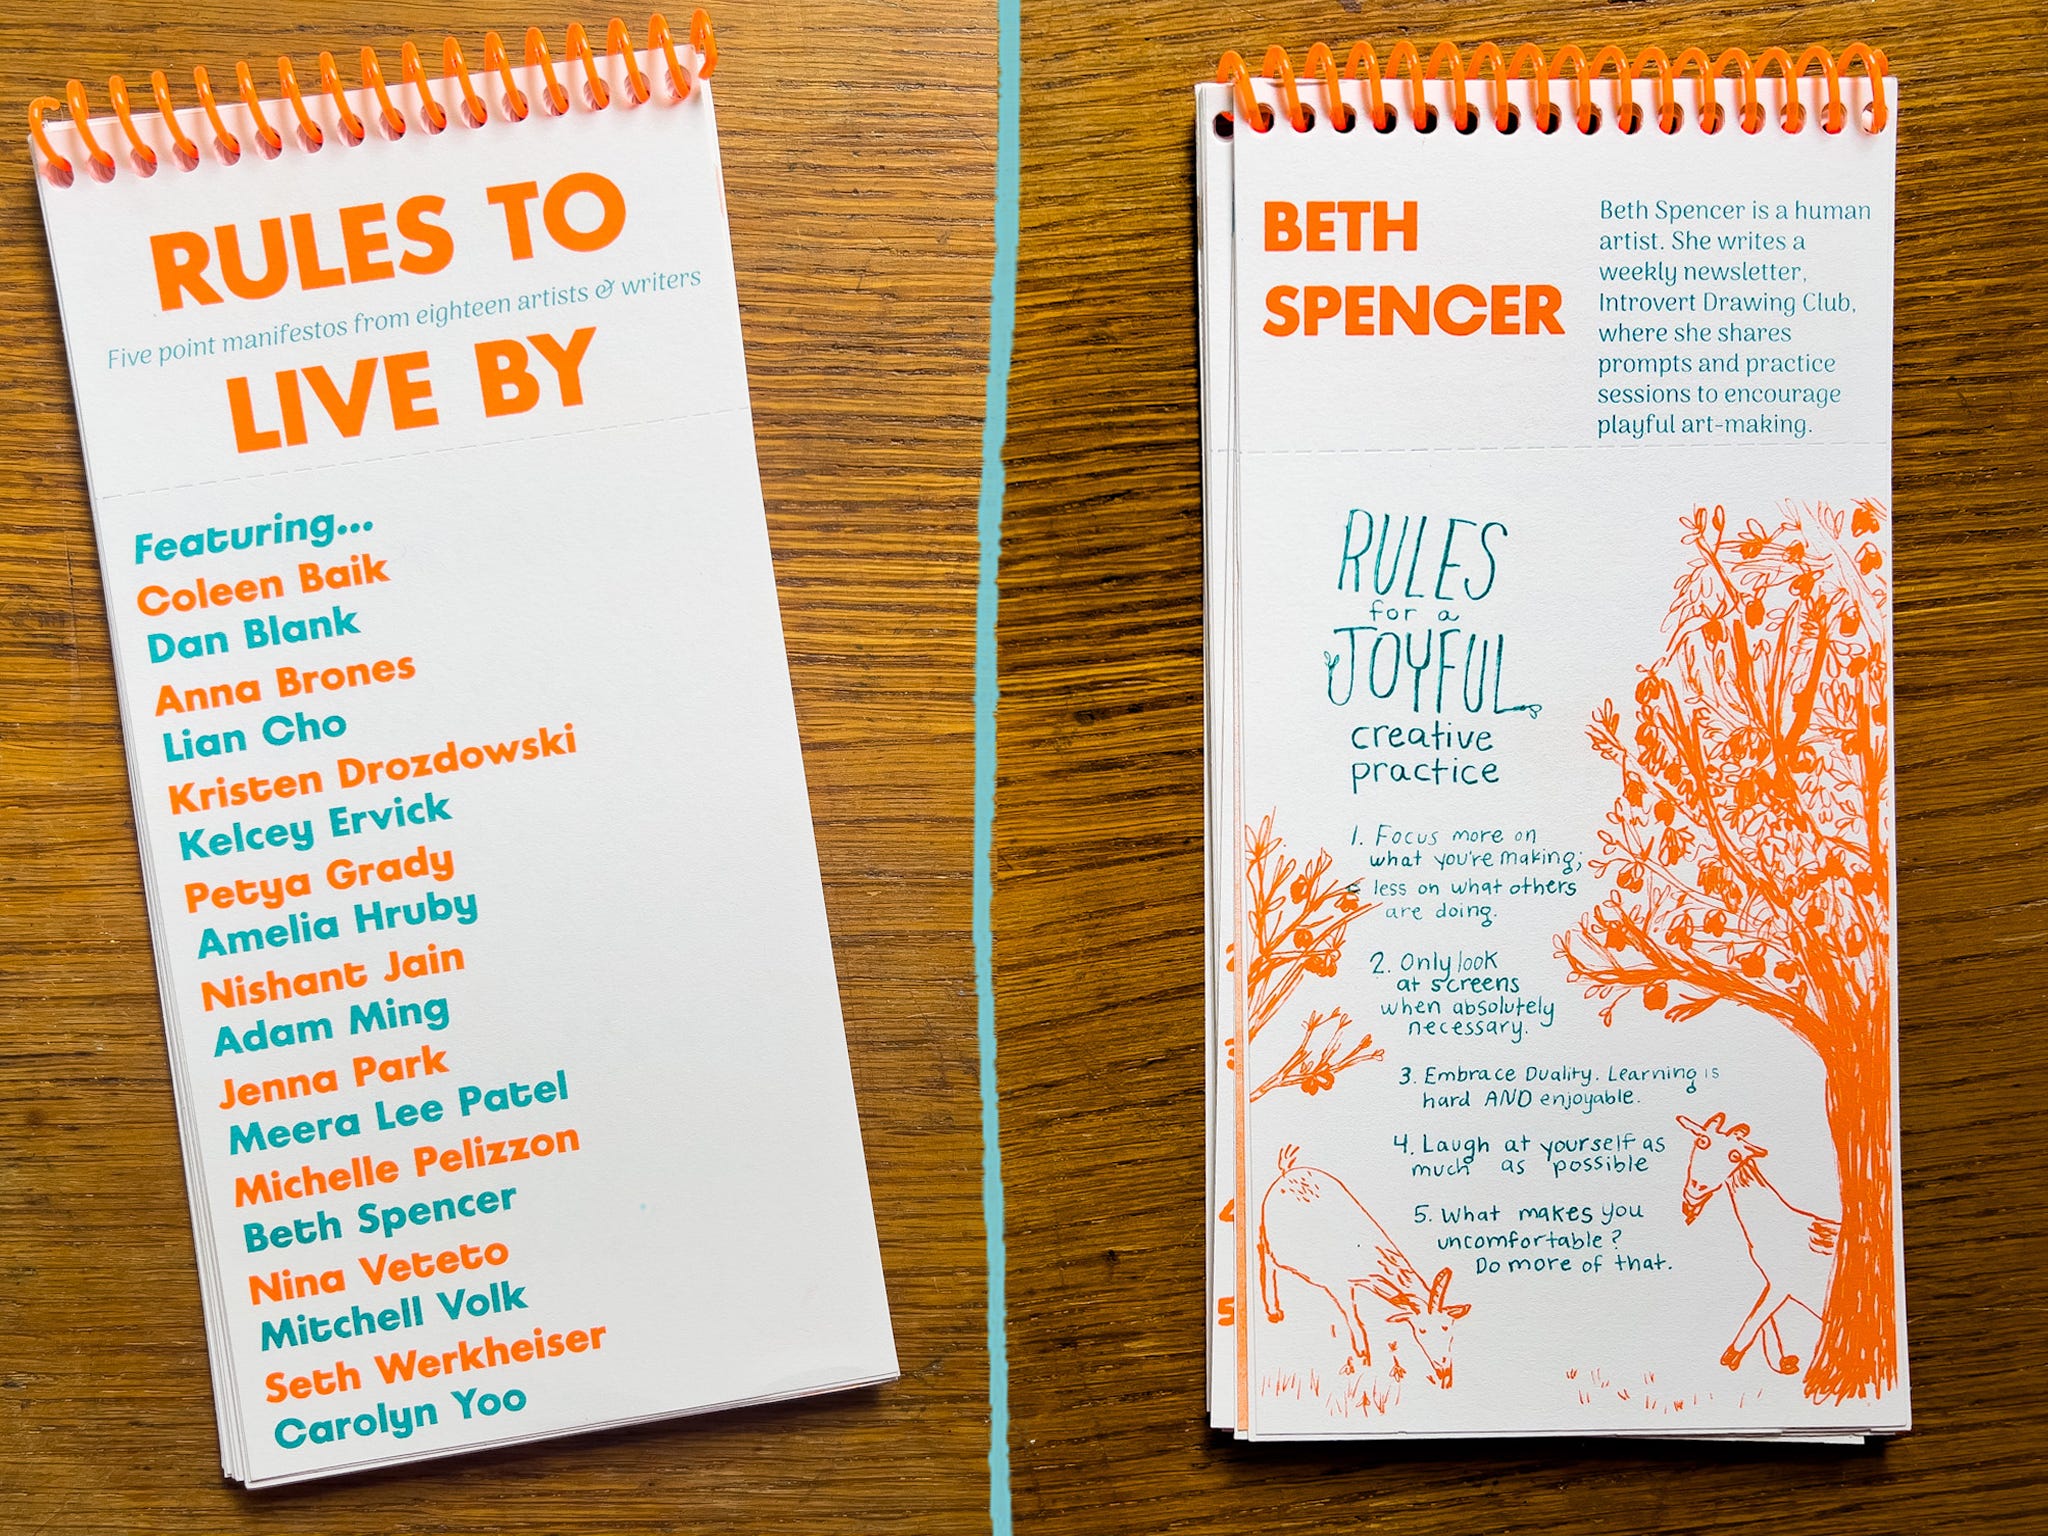 RULES TO
Five point manifestos from eighteen artists & writers
LIVE BY
Featuring...
Coleen Baik
Dan Blank
Anna Brones
Lian Cho
Kristen Drozdowski
Kelcey Ervick
Petya Grady
Amelia Hruby
Nishant Jain
Adam Ming
Jenna Park
Meera Lee Patel
Michelle Pelizzon
Beth Spencer
Nina Veteto
Mitchell Volk
Seth Werkheiser
Carolyn Yoo
BETH
SPENCER
Beth Spencer is a human
artist. She writes a
weekly newsletter,
Introvert Drawing Club,
where she shares
prompts and practice
sessions to encourage
playful art-making.
RULES
for a
JOYFUL
creative
practice
1. Focus more on
what you're making;
less on what others
are doing.
2. Only look
at screens
when absolutely
necessary.
3. Embrace Duality. Learning is
hard AND enjoyable.
4. Laugh at yourself as
much as possible
5. What makes you
uncomfortable?
Do more of that.